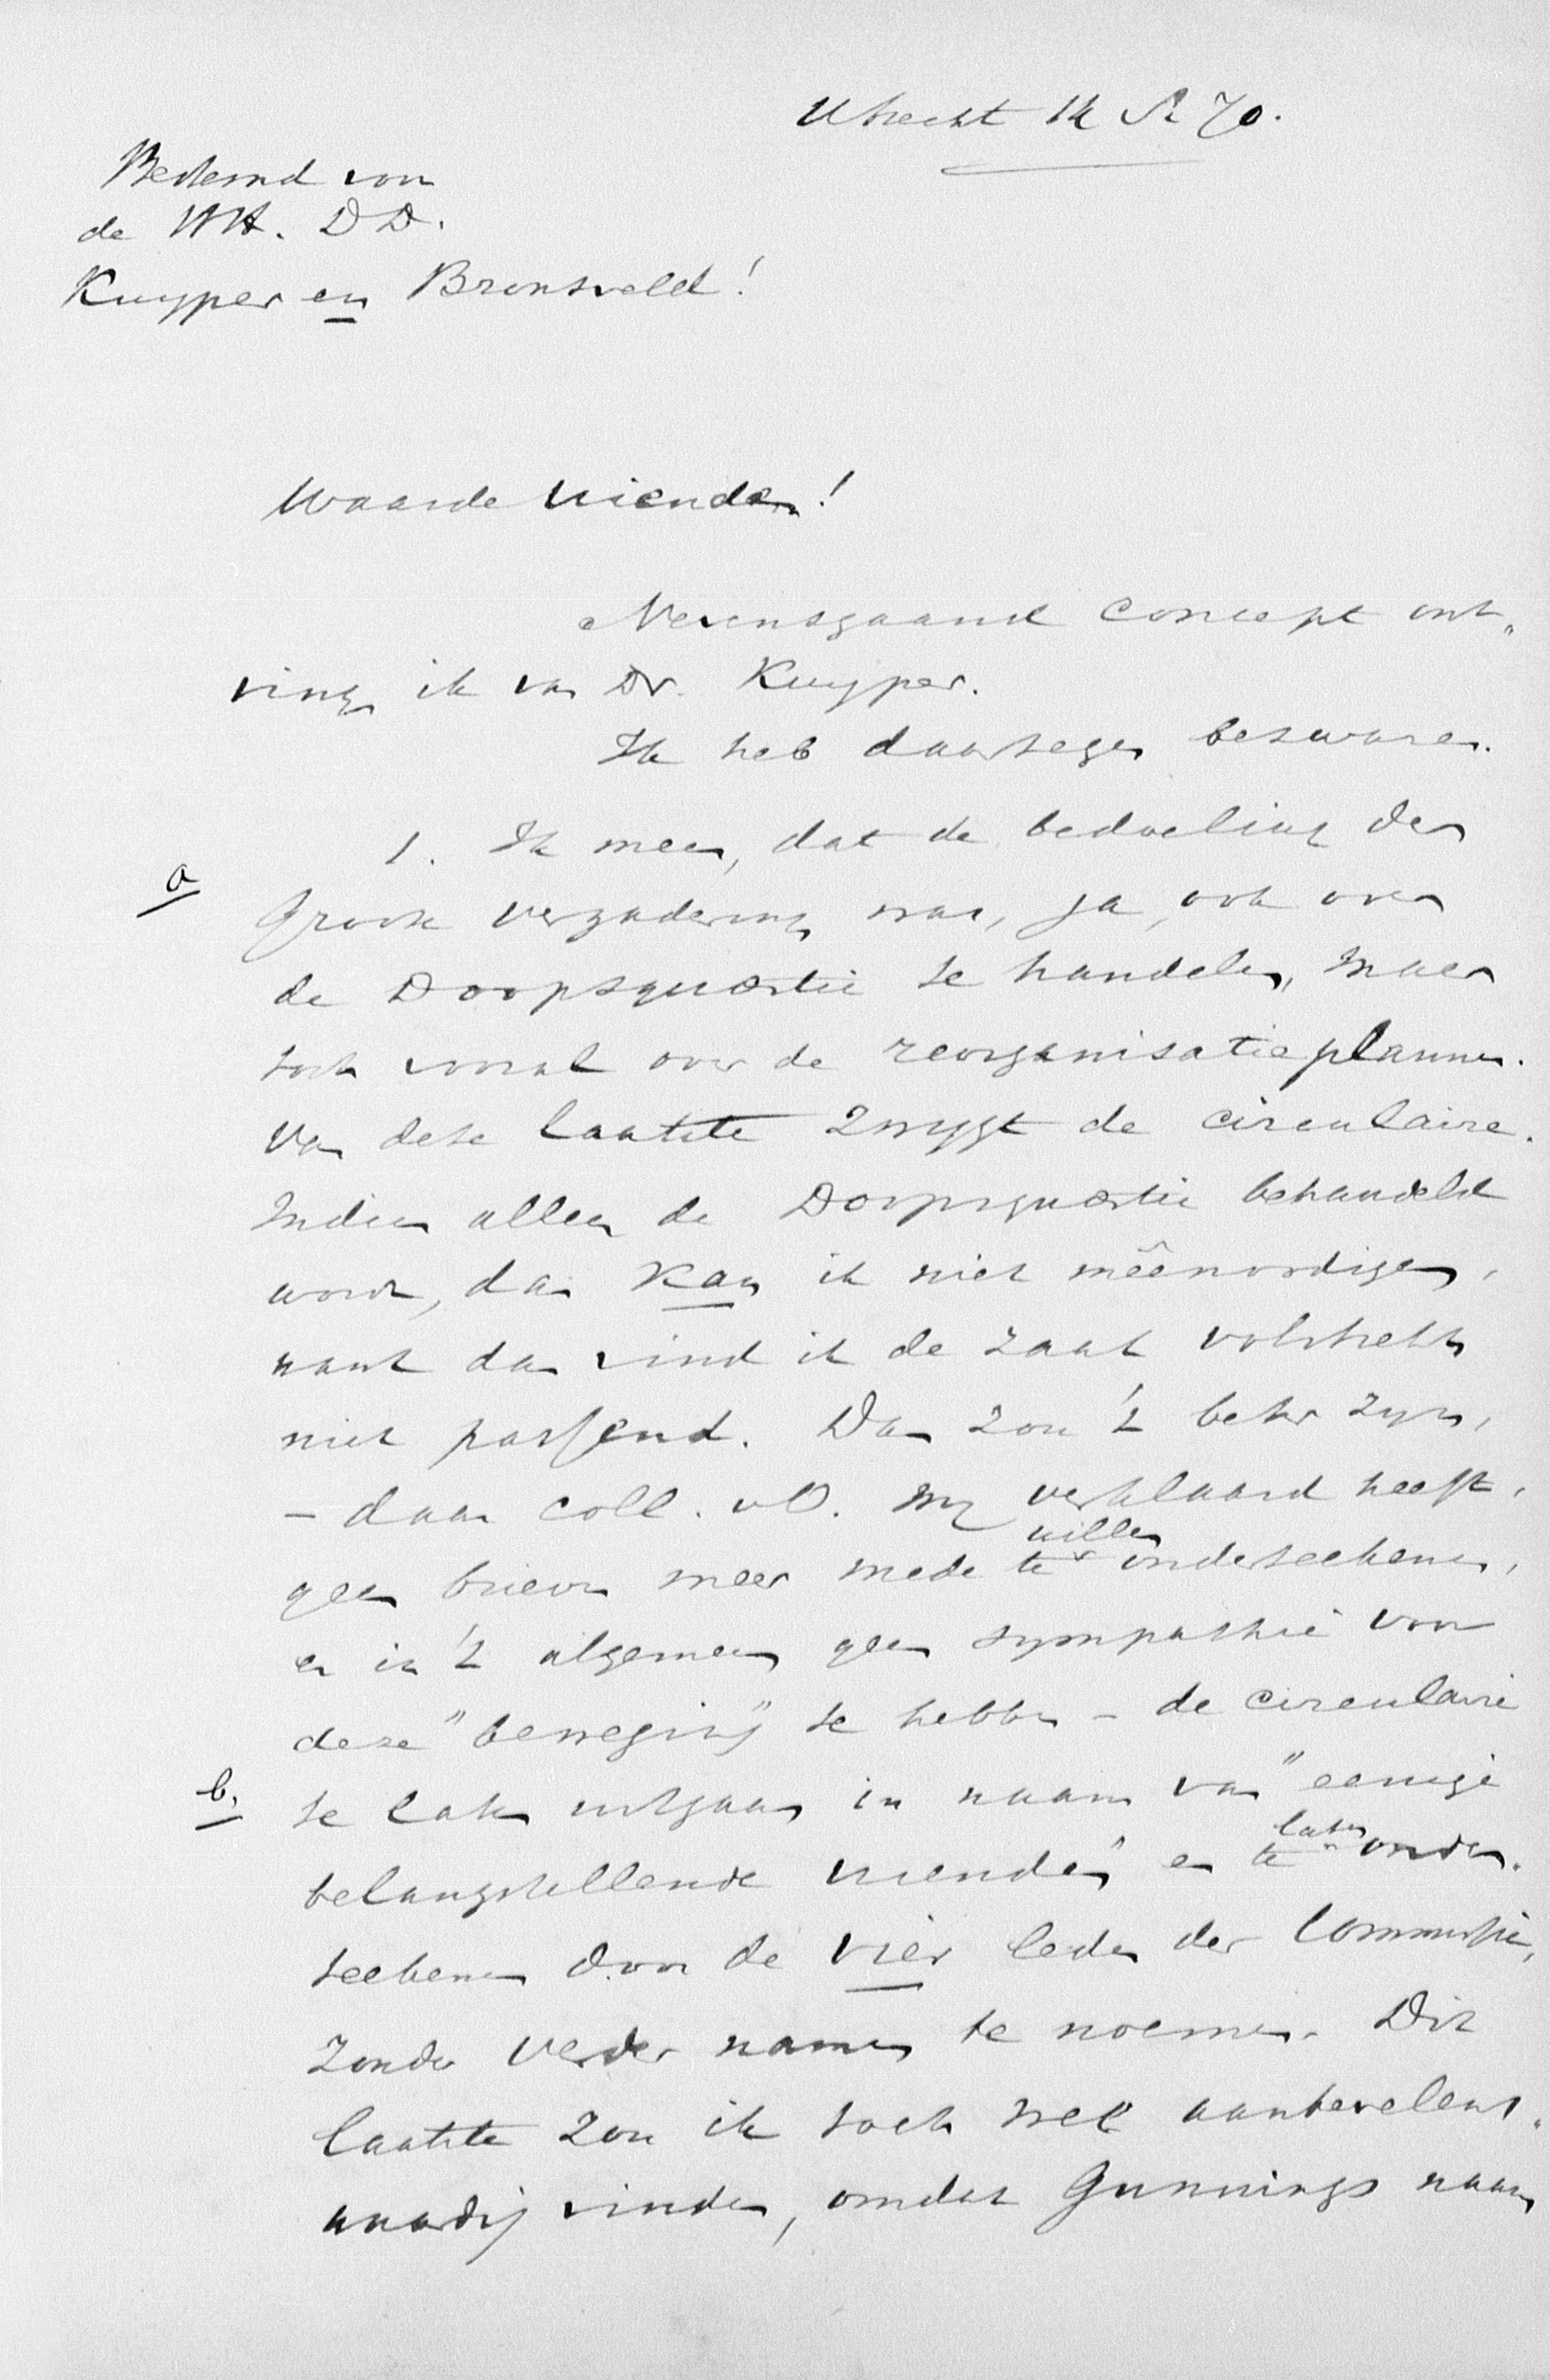 Utrecht 14 70.
Bestemd voor
de WH. DD.
Kuyper en Bronsveld!
Waarde Vrienden!
Nevensgaand concept ont„
ving ik van Dr. Kuyper.
Ik heb daartegen bezwaren.
1. Ik meen, dat de bedoeling der
a
groote vergadering was, ja, ook over
de Doopsquaestie te handelen, maar
toch vooral over de reorganisatieplannen.
Van deze laatste zwygt de circulaire.
Indien alleen de Doopsquaestie behandeld
wordt, dan kan ik niet mêênoodigen,
want dan vind ik de zaak volstrekt
niet passend. Dan zou 't beter zyn,
- daar coll. vO. my verklaard heeft,
geen brieven meer mede te willen onderteekenen,
en in 't algemeen geen sympathie voor
deze "beweging" te hebben - de circulaire
b.
te laten uitgaan in naam van "eenige
belangstellende vrienden" en te laten onder„
teekenen door de vier leden der Commissie,
zonder verder namen te noemen. Dit
laatste zou ik toch wel aanbevelens„
waardig vinden, omdat Gunnings naam